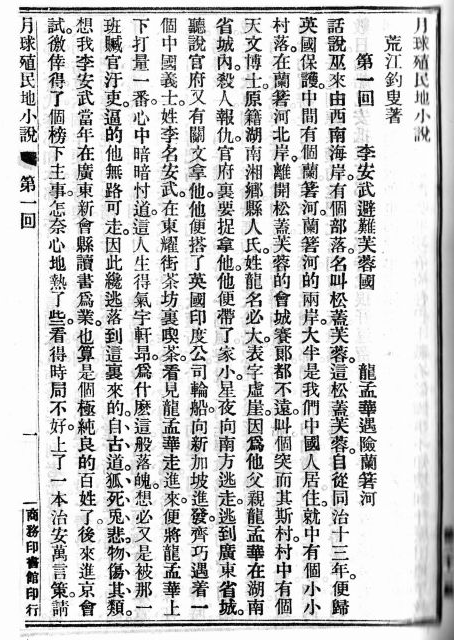 月球殖民地小說
荒江釣叟著
第一回　李安武避難芙蓉國　龍孟華遇險蘭箬河
話說巫來由西南海岸有個部落名叫松蓋芙蓉。這松蓋芙蓉自從同治十三年。便歸
英國保護。中間有個蘭箬河。蘭箬河的兩岸。大半是我們中國人居住。就中有個小小
村落。在蘭箬河北岸。離開松蓋芙蓉的會城賽郞都不遠。叫個突而其斯村。村中有個
天文博士。原籍湖南湘鄉縣人氏。姓龍名必大。表字虛崖。因爲他父親龍孟華在湖南
省城內殺人報仇。官府裏要捉拿他。他便帶了家小。星夜向南方逃走。逃到廣東省城。
聽說官府又有關文拿他。他便搭了英國印度公司輪船。向新加坡進發。齊巧遇着一
個中國義士。姓李名安武。在東耀街茶坊裏喫茶。看見龍孟華走進來。便將龍孟華上
下打量一番。心中暗暗忖道。這人生得氣宇軒昂。爲什麽這般落魄。想必又是被那一
班贓官汙吏。逼的他無路可走。因此纔逃落到這裏來的。自古道、狐死兎悲。物傷其類。
想我李安武當年在廣東新會縣讀書爲業。也算是個極純良的百姓了。後來進京會
試。徼倖得了個榜下主事。怎奈心地熱了些。看得時局不好。上了一本治安萬言策。請
月球殖民地小說　第一回　一　商務印書館印行